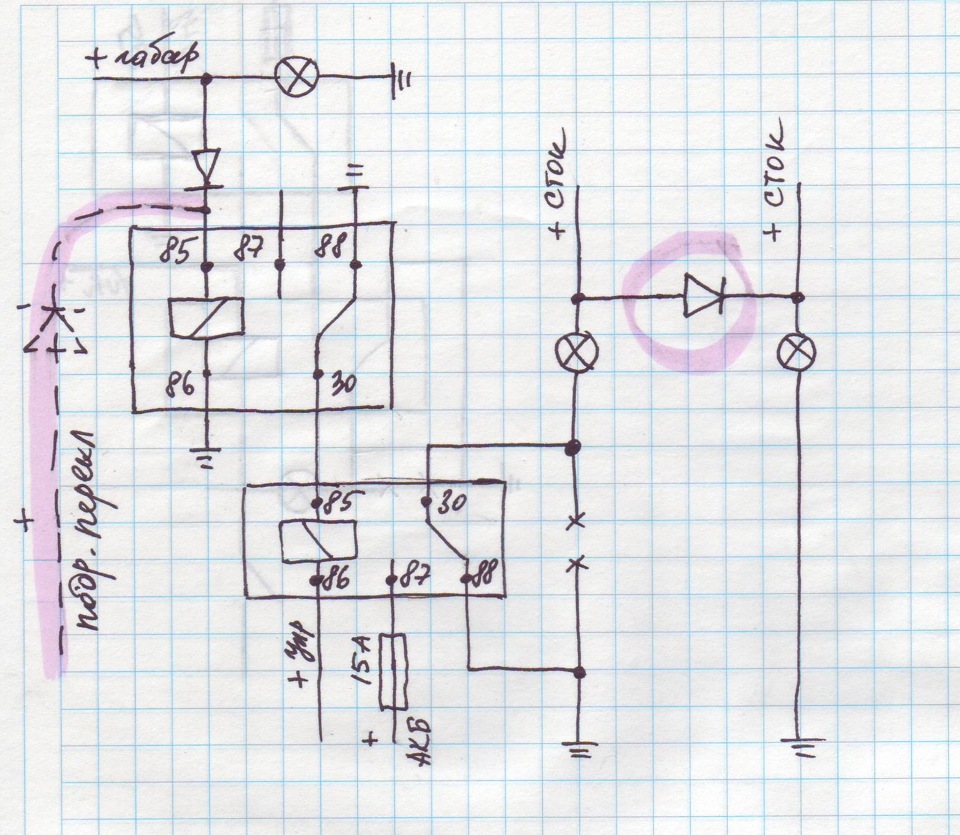 + габар
+ сток
+ сток
85
87
88
86
30
+
подр. перекл
85
30
86
87
88
+ Упр
15А
+ АКБ